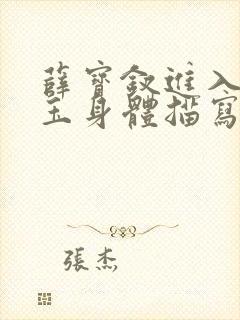 薛寶釵進入
玉身體描寫
張杰